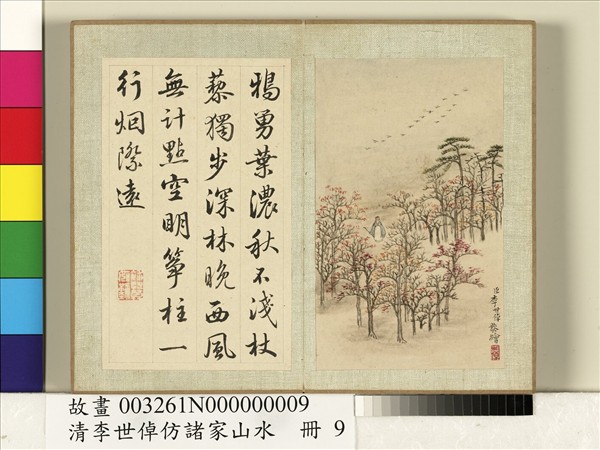 鴉舅葉濃秋不淺杖
藜獨步深林晚西風
無計點空明箏柱一
行烟際遠
臣李世倬恭繪
故畫 003261N000000009
清李世倬仿諸家山水　冊 9